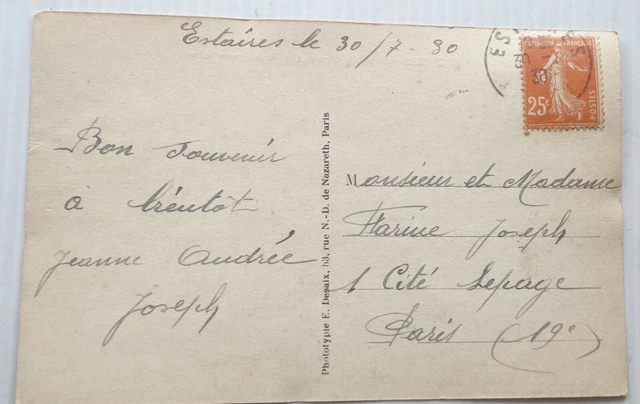 Estaires le 30/7-30
ES
30
RÉPUBLIQUE FRANÇAISE
25c
POSTES
Bon souvenir
à biéntôt
Jeanne Andrée
Joseph
Phototypie E. Desaix, 53, rue N.-D. de Nazareth, Paris
Monsieur et Madame
Farine Joseph
1 Cité Lepage
Paris (19e)